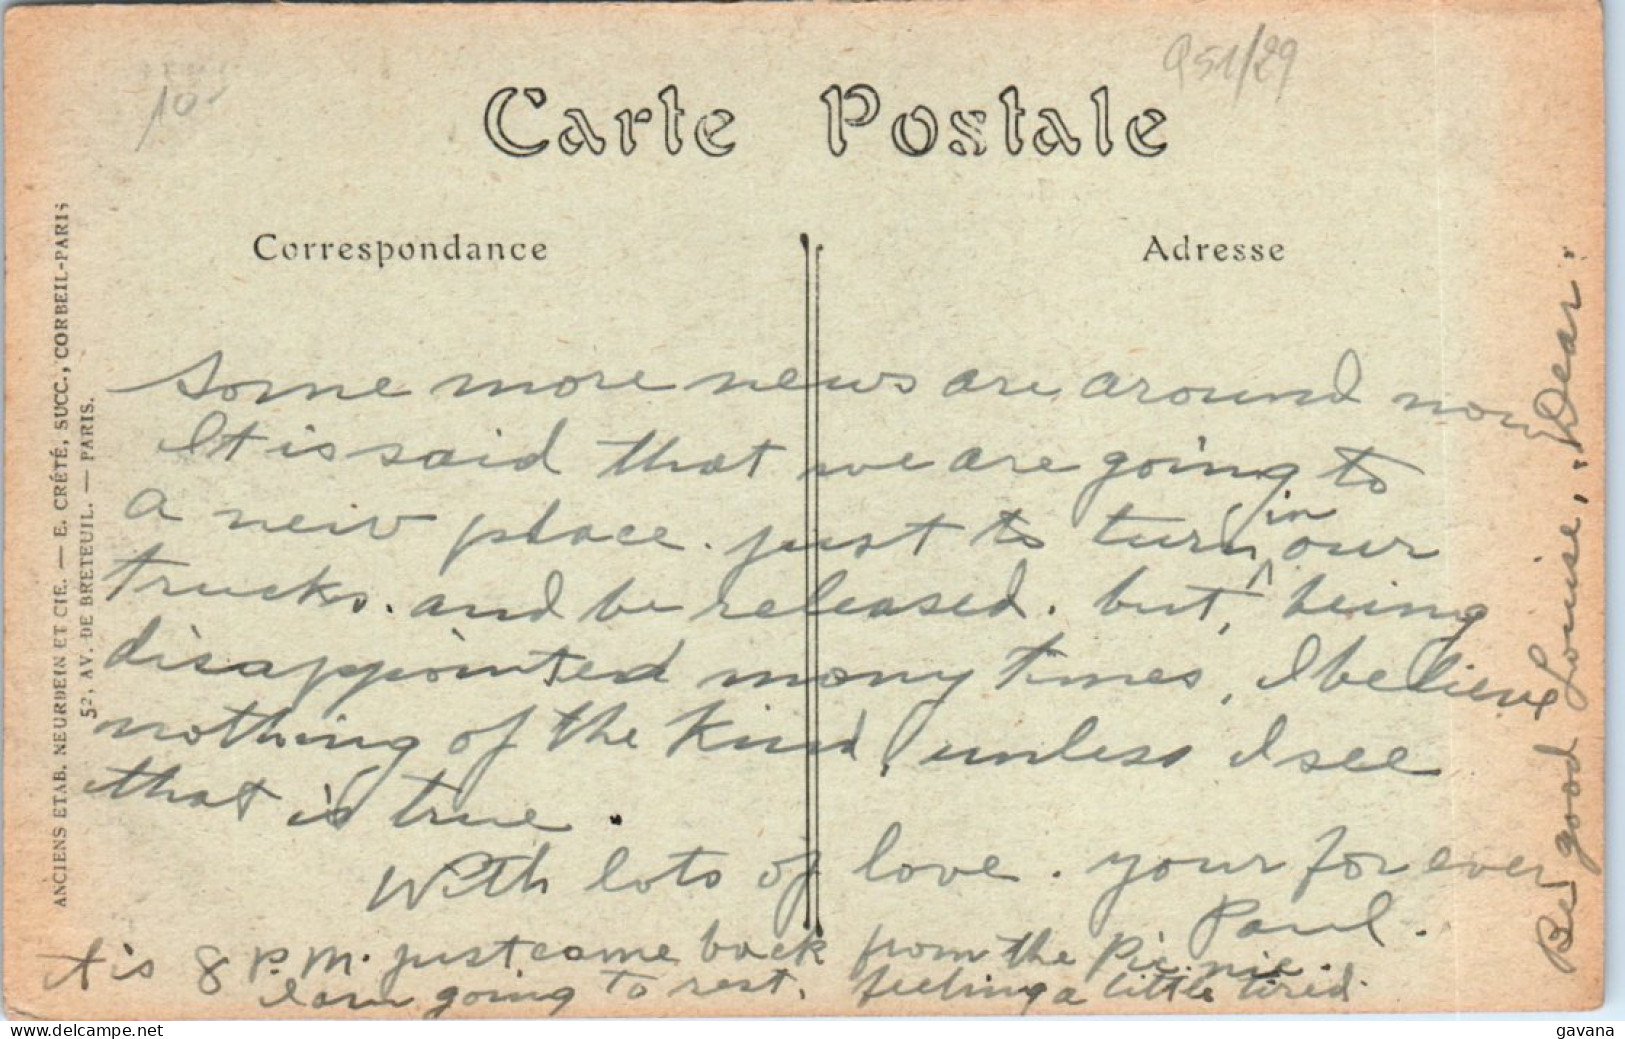 10-
Q51/29
Carte Postale
Correspondance
Adresse
ANCIENS ETAB. NEURDEIN ET CIE. — E. CRÉTÉ, SUCC., CORBEIL-PARIS
52, AV. DE BRETEUIL. — PARIS.
Some more news are around now
It is said that we are going to
a new place. just to turn in our
trucks. and be released. but, being
disappointed many times, I believe
nothing of the kind, unless I see
that is true.
With lots of love. your for ever
Paul.
t is 8 P.M. just came back from the Pic nic.
I am going to rest. feeling a little tired.
Be good Louise, Dear.
www.delcampe.net
gavana